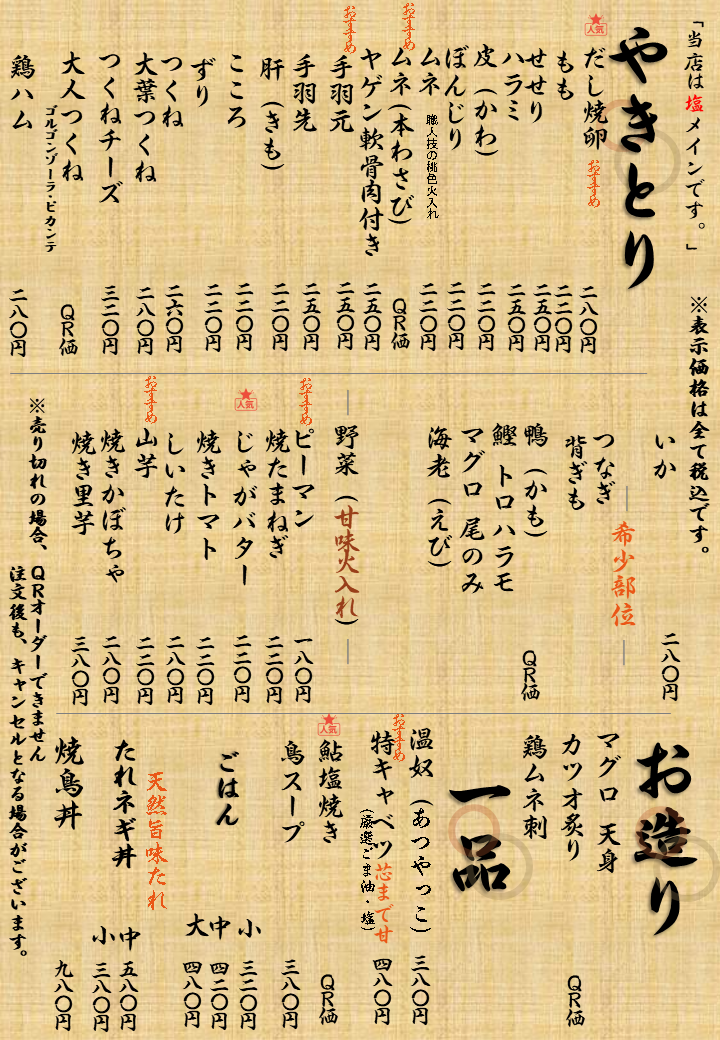 「当店は塩メインです。」
※表示価格は全て税込です。
やきとり
人気
だし焼卵 おすすめ 二八〇円
もも 二二〇円
せせり 二五〇円
ハラミ 二五〇円
皮（かわ） 二二〇円
ぼんじり 二二〇円
ムネ 職人技の桃色火入れ 二二〇円
おすすめ
ムネ（本わさび） QR価
ヤゲン軟骨肉付き 二五〇円
おすすめ
手羽元 二五〇円
手羽先 二五〇円
肝（きも） 二二〇円
こころ 二二〇円
ずり 二二〇円
つくね 二六〇円
大葉つくね 二八〇円
つくねチーズ 三二〇円
大人つくね QR価
ゴルゴンゾーラ・ピカンテ
鶏ハム 二八〇円
いか 二八〇円
希少部位
つなぎ
背ぎも
鴨（かも） QR価
鰹 トロハラモ
マグロ 尾のみ
海老（えび）
野菜（甘味火入れ）
おすすめ
ピーマン 一八〇円
焼たまねぎ 二二〇円
人気
じゃがバター 二二〇円
焼きトマト 二二〇円
しいたけ 二八〇円
おすすめ
山芋 二二〇円
焼きかぼちゃ 二八〇円
焼き里芋 三八〇円
お造り
マグロ 天身
カツオ炙り QR価
鶏ムネ刺
一品
温奴（あつやっこ） 三八〇円
おすすめ
特キャベツ 芯まで甘 四八〇円
（厳選ごま油・塩）
人気
鮎塩焼き QR価
鳥スープ 三八〇円
ごはん
小 三二〇円
中 四二〇円
大 四八〇円
天然旨味たれ
たれネギ丼
中 五八〇円
小 三八〇円
焼鳥丼 九八〇円
※売り切れの場合、QRオーダーできません
注文後も、キャンセルとなる場合がございます。